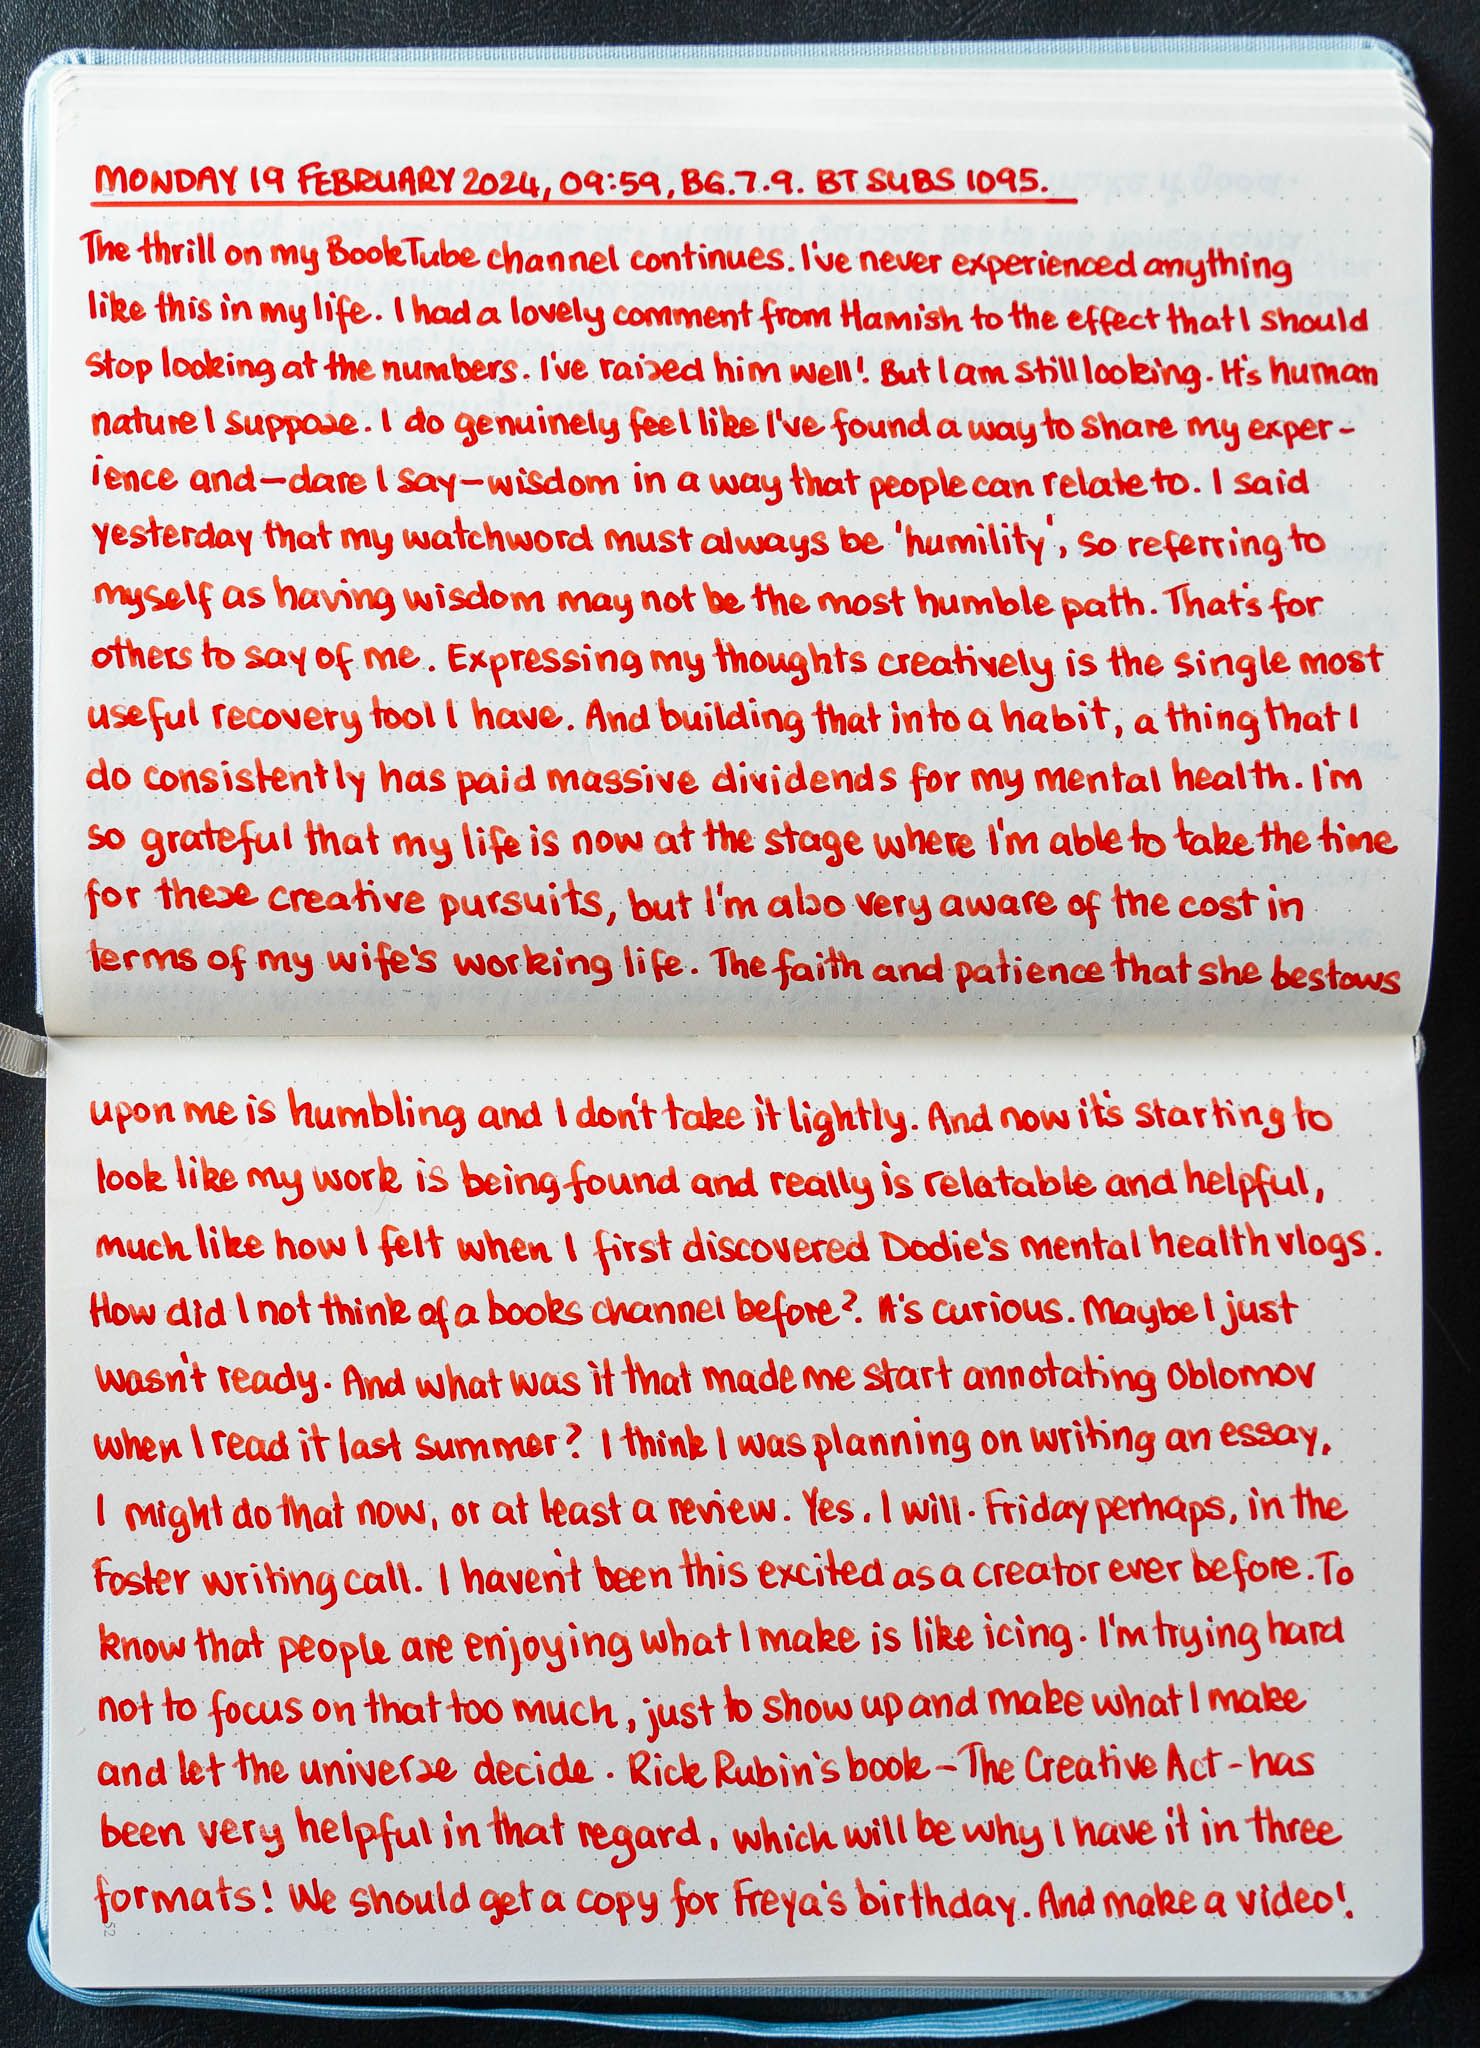 MONDAY 19 FEBRUARY 2024, 09:59, BG.7.9. BT SUBS 1095.
The thrill on my BookTube channel continues. I've never experienced anything
like this in my life. I had a lovely comment from Hamish to the effect that I should
stop looking at the numbers. I've raised him well! But I am still looking. It's human
nature I suppose. I do genuinely feel like I've found a way to share my exper-
ience and—dare I say—wisdom in a way that people can relate to. I said
yesterday that my watchword must always be 'humility', so referring to
myself as having wisdom may not be the most humble path. That's for
others to say of me. Expressing my thoughts creatively is the single most
useful recovery tool I have. And building that into a habit, a thing that I
do consistently has paid massive dividends for my mental health. I'm
so grateful that my life is now at the stage where I'm able to take the time
for these creative pursuits, but I'm also very aware of the cost in
terms of my wife's working life. The faith and patience that she bestows
upon me is humbling and I don't take it lightly. And now it's starting to
look like my work is being found and really is relatable and helpful,
much like how I felt when I first discovered Dodie's mental health vlogs.
How did I not think of a books channel before? It's curious. Maybe I just
wasn't ready. And what was it that made me start annotating Oblomov
when I read it last summer? I think I was planning on writing an essay,
I might do that now, or at least a review. Yes. I will. Friday perhaps, in the
Foster writing call. I haven't been this excited as a creator ever before. To
know that people are enjoying what I make is like icing. I'm trying hard
not to focus on that too much, just to show up and make what I make
and let the universe decide. Rick Rubin's book – The Creative Act – has
been very helpful in that regard, which will be why I have it in three
formats! We should get a copy for Freya's birthday. And make a video!
52